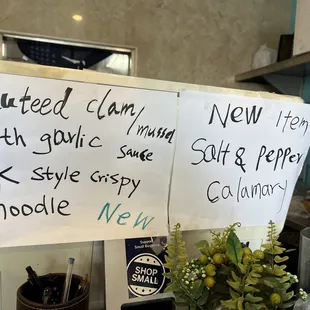 uteed clam/mussel
th garlic sauce
K style crispy
noodle New
New Item
Salt & pepper
calamary
SHOP
SMALL